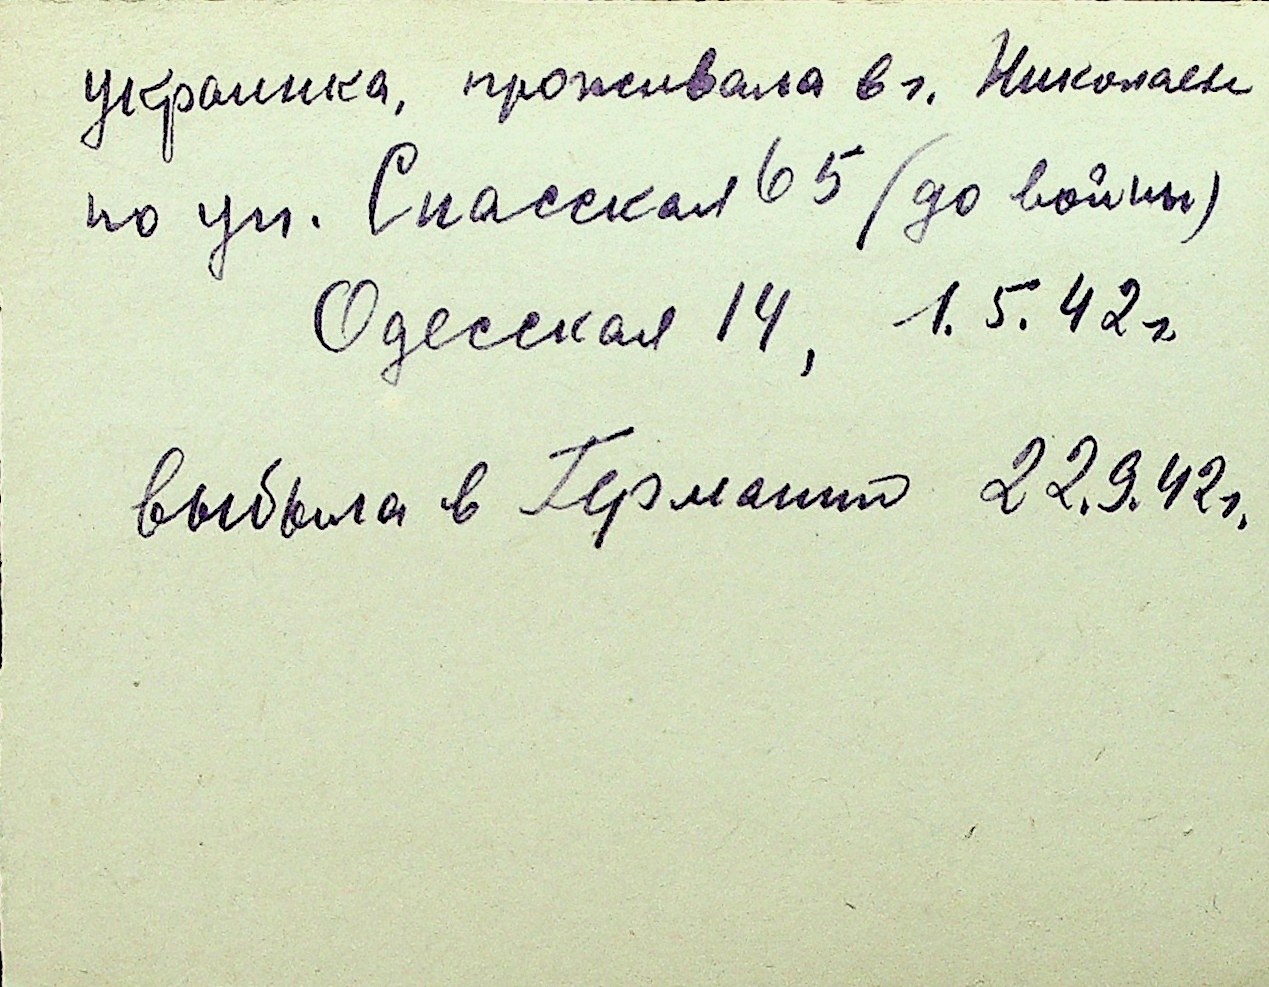 украинка, проживала в г. Николаеве
по ул. Спасская 65 (до войны)
Одесская 14, 1.5.42г
выбыла в Германию 22.9.42г.